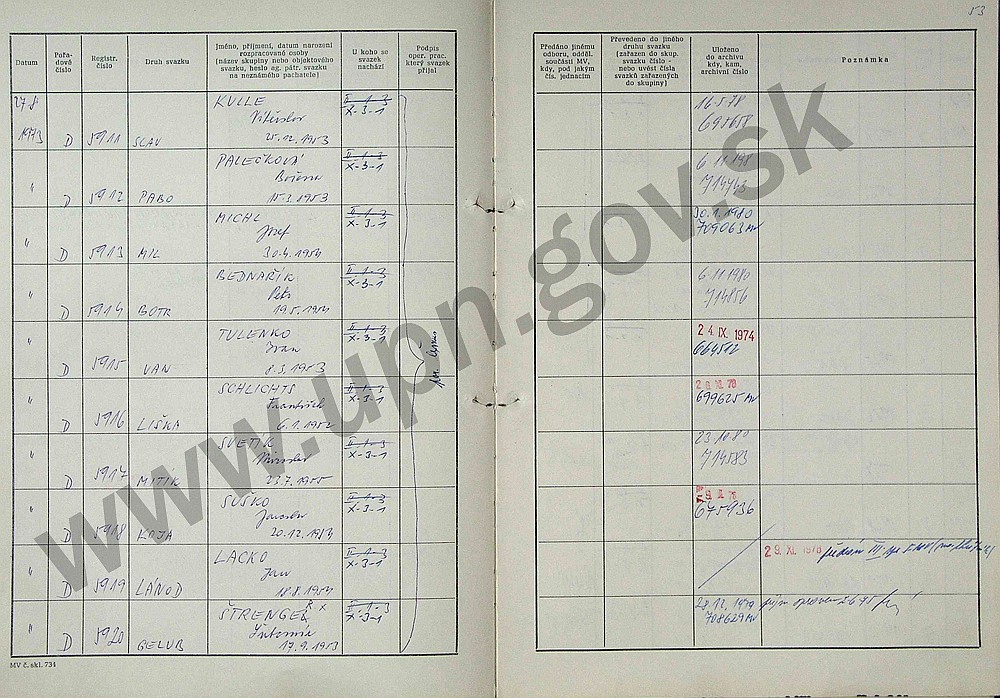 53
Datum
Pořa-
dové
číslo
Registr.
číslo
Druh svazku
Jméno, příjmení, datum narození
rozpracované osoby
(název skupiny nebo objektového
svazku, heslo ag. pátr. svazku
na neznámého pachatele)
U koho se
svazek
nachází
Podpis
oper. prac.
který svazek
přijal
Předáno jinému
odboru, odděl.
součásti MV,
kdy, pod jakým
čís. jednacím
Převedeno do jiného
druhu svazku
(zařazen do skup.
svazku číslo -
nebo uvést čísla
svazků zařazených
do skupiny)
Uloženo
do archivu
kdy, kam,
archivní číslo
Poznámka
27.8.
1973 D 5911 SLAV
KULLE
Vítězslav
25.12.1953
II-1-3
X-3-1
16.5.78
695658
" D 5912 PABO
PALEČKOVÁ
Božena
15.3.1953
II-1-3
X-3-1
714743
" D 5913 MIL
MICHL
Josef
30.4.1954
II-1-3
X-3-1
30.1.1980
709063
" D 5914 BOTR
BEDNAŘÍK
Petr
19.5.1954
II-1-3
X-3-1
6.11.1980
714856
" D 5915 VAN
TULENKO
Ivan
8.3.1953
II-1-3
X-3-1
24. IX. 1974
664512
" D 5916 LIŠKA
SCHLICHTS
František
6.1.1952
II-1-3
X-3-1
699625
" D 5917 MITIK
SVETÍK
Miroslav
23.7.1955
II-1-3
X-3-1
23.10.80
714583
" D 5918 KOJA
SUŠKO
Jaroslav
20.12.1954
II-1-3
X-3-1
675936
" D 5919 LÁNOD
LACKO
Jan
18.8.1954
II-1-3
X-3-1
29. XI. 1978
" D 5920 GELUB
ŠTRENGER
Ľubomír
17.9.1953
II-1-3
X-3-1
28.12.1979
708629
MV č. skl. 734
www.upn.gov.sk